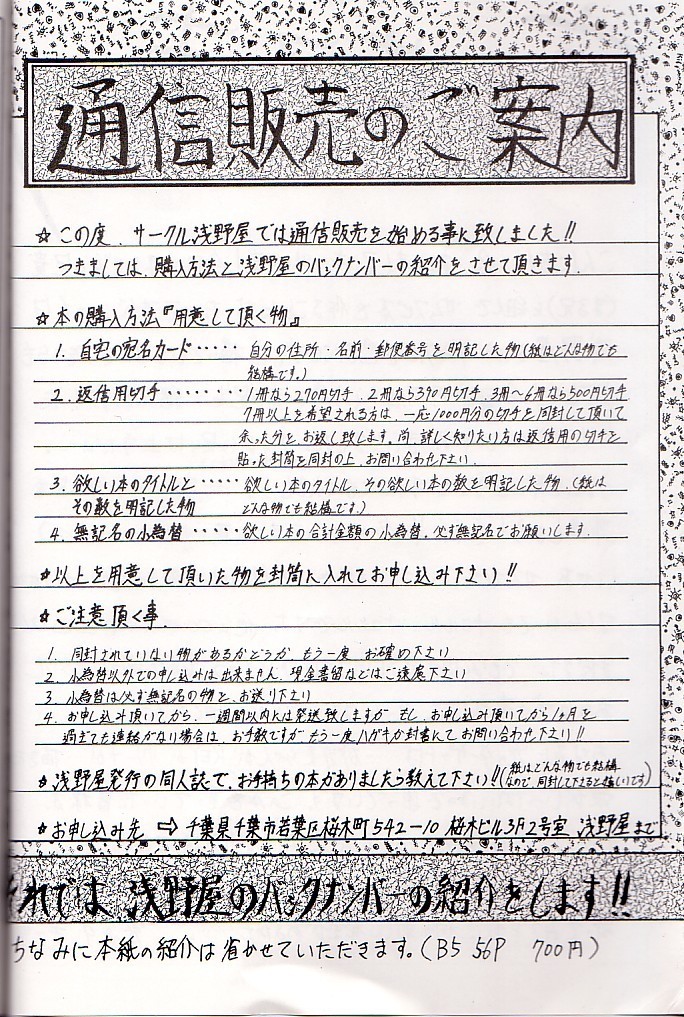 通信販売のご案内
☆この度、サークル浅野屋では通信販売を始める事に致しました!!
つきましては、購入方法と浅野屋のバックナンバーの紹介をさせて頂きます。
☆本の購入方法『用意して頂く物』
1. 自宅の宛名カード‥‥‥ 自分の住所・名前・郵便番号を明記した物(紙はどんな物でも
結構です。)
2. 返信用切手‥‥‥‥ 1冊なら270円切手、2冊なら390円切手、3冊〜6冊なら500円切手
7冊以上を希望される方は、一応1000円分の切手を同封して頂いて
余った分を、お返し致します。尚、詳しく知りたい方は返信用の切手を
貼った封筒を同封の上、お問い合わせ下さい。
3. 欲しい本のタイトルと‥‥‥ 欲しい本のタイトル、その欲しい本の数を明記した物。(紙は
その数を明記した物 どんな物でも結構です。)
4. 無記名の小為替‥‥‥ 欲しい本の合計金額の小為替。必ず無記名でお願いします。
☆以上を用意して頂いた物を封筒に入れてお申し込み下さい!!
☆ご注意頂く事
1. 同封されていない物があるかどうか、もう一度、お確め下さい
2. 小為替以外での申し込みは出来ません。現金書留などはご遠慮下さい
3. 小為替は必ず無記名の物を、お送り下さい
4. お申し込み頂いてから、一週間以内には発送致しますが、もし、お申し込み頂いてから1ヶ月を
過ぎても連絡がない場合は、お手数ですが、もう一度ハガキか封書にて、お問い合わせ下さい!!
☆浅野屋発行の同人誌で、お手持ちの本がありましたら教えて下さい!!(紙はどんな物でも結構
なので、同封して下さると嬉しいです)
☆お申し込み先 ⇨ 千葉県千葉市若葉区桜木町542-10 桜木ビル3F2号室 浅野屋まで
それでは、浅野屋のバックナンバーの紹介をします!!
ちなみに本紙の紹介は省かせていただきます。(B5 56P 700円)